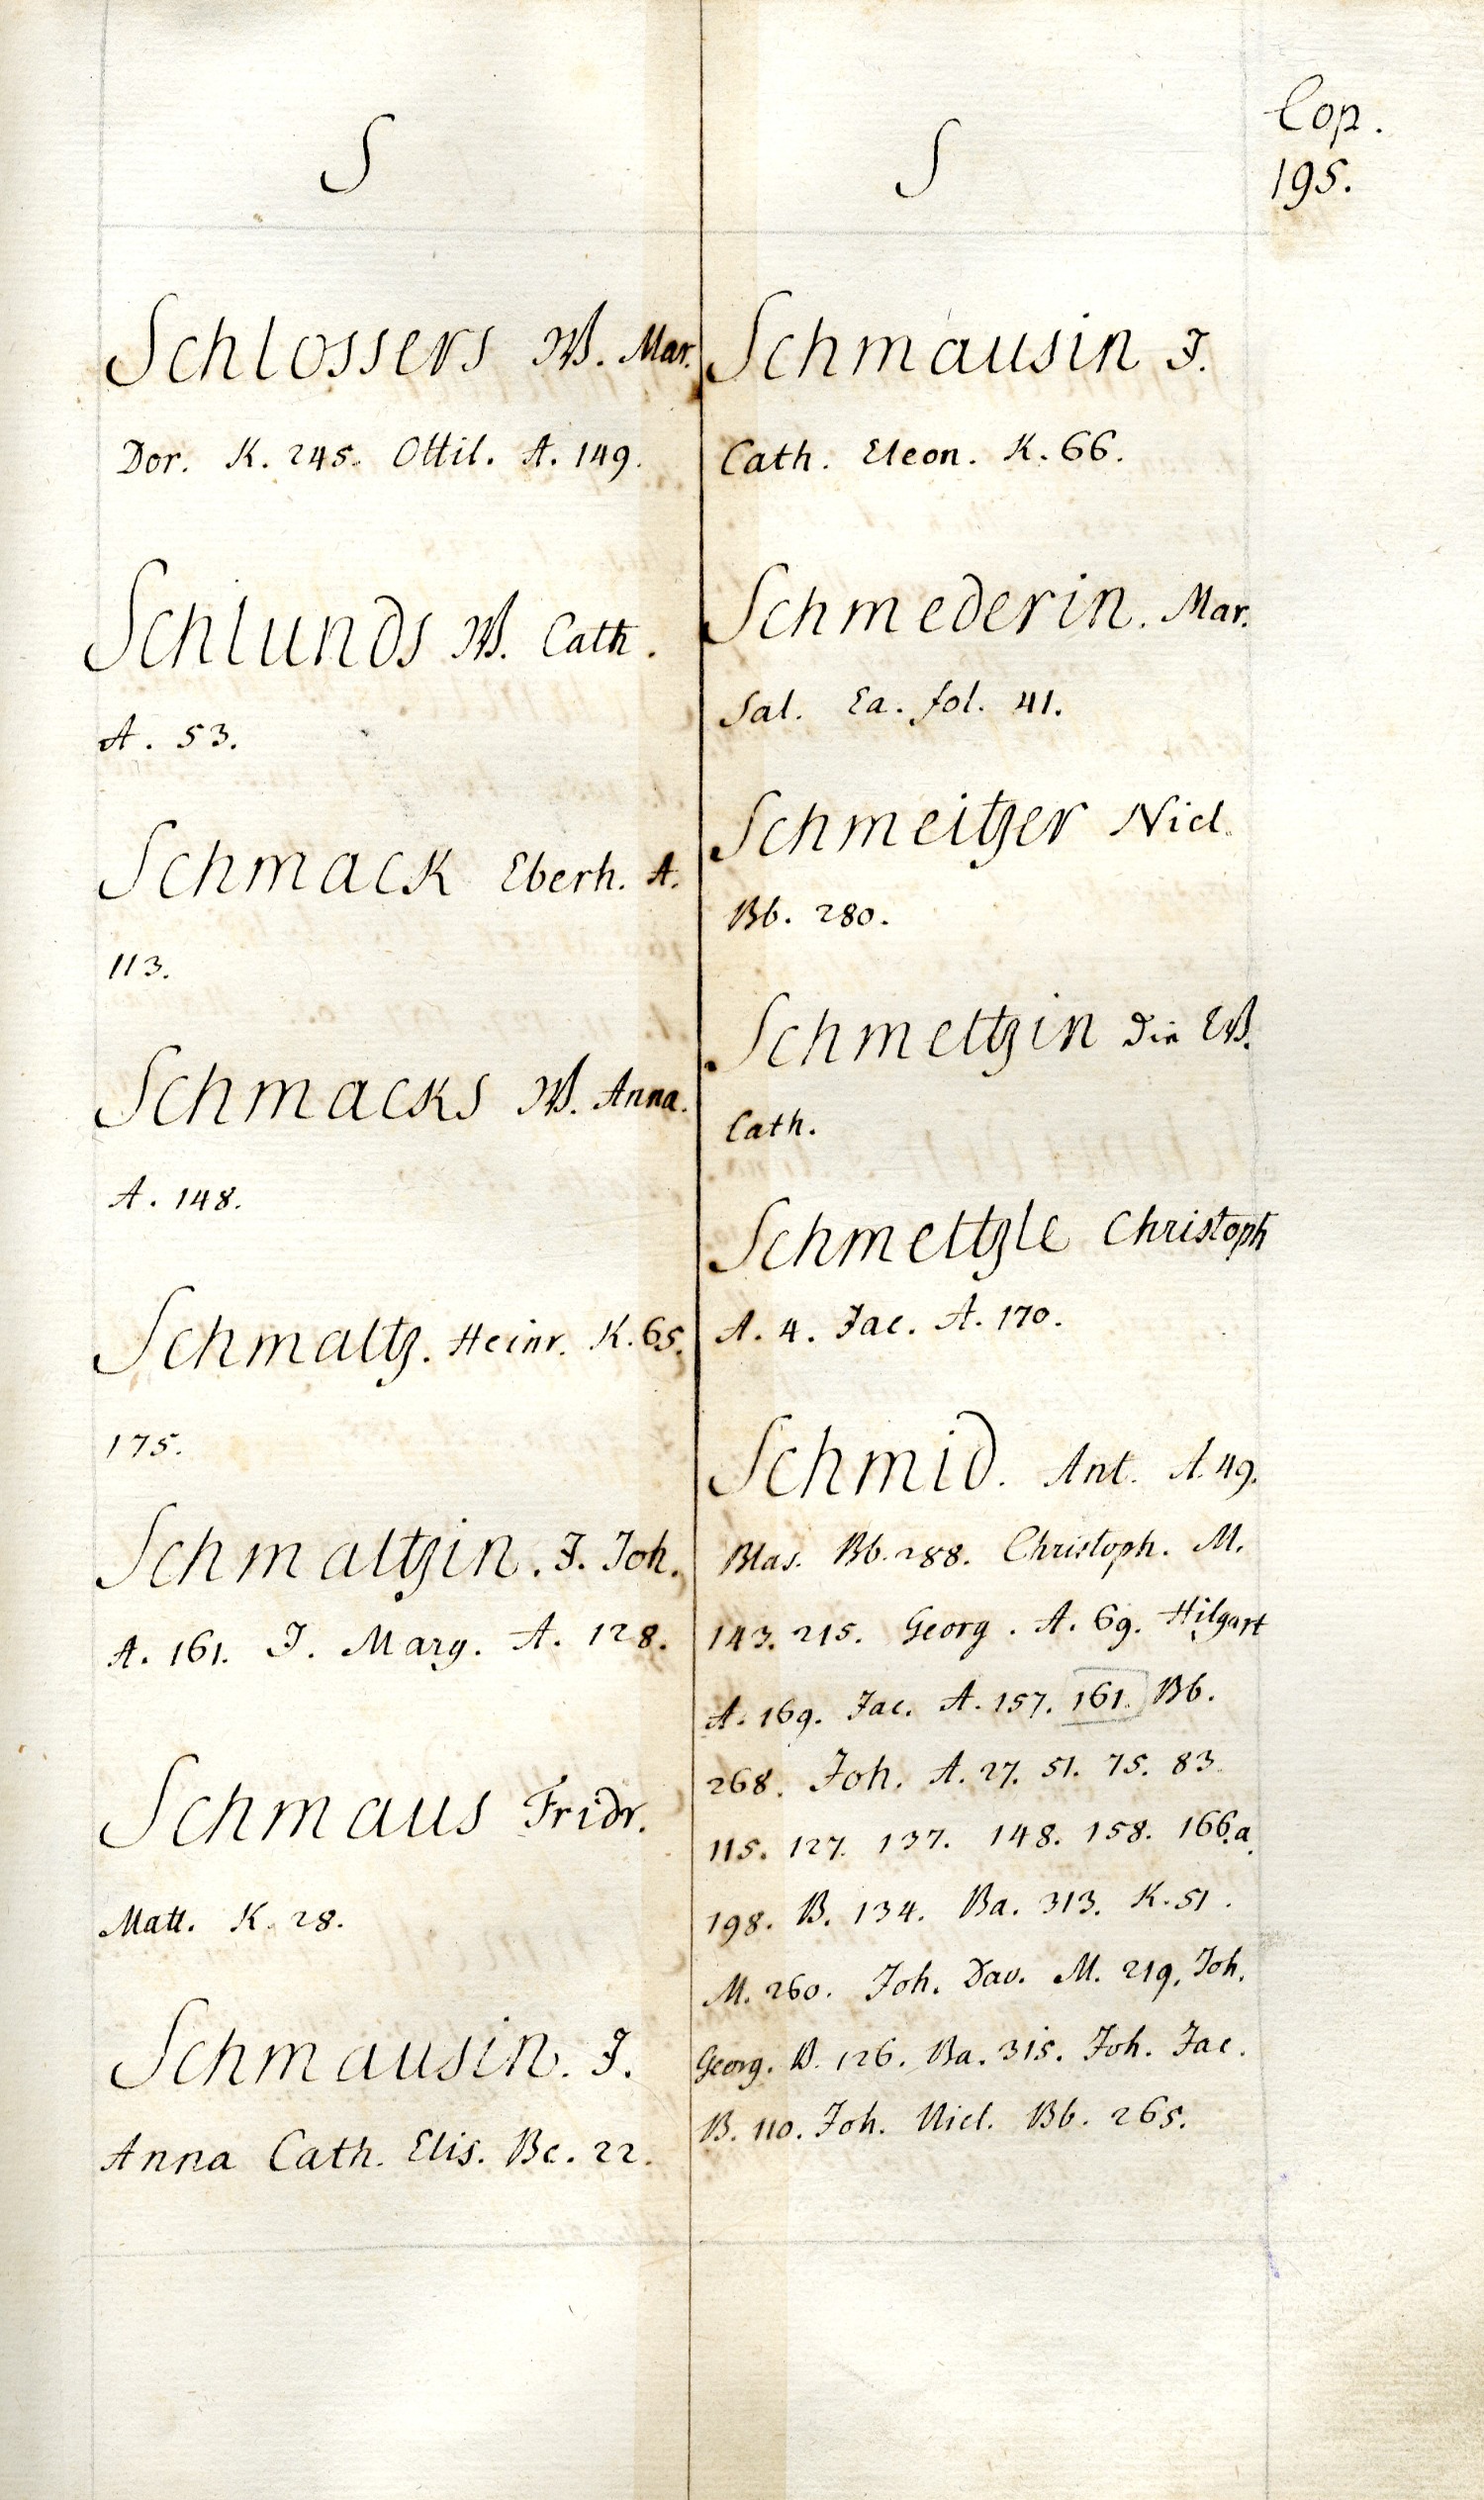 Cop.
195.
S
Schlossers W. Mar.
Dor. K. 245. Ottil. A. 149.
Schlunds W. Cath.
A. 53.
Schmack Eberh. A.
113.
Schmacks W. Anna.
A. 148.
Schmaltz. Heinr. K. 65.
175.
Schmaltzin. J. Joh.
A. 161. J. Marg. A. 128.
Schmaus Fridr.
Matt. K. 28.
Schmausin. J.
Anna Cath. Elis. Bc. 22.
S
Schmausin J.
Cath. Eleon. K. 66.
Schmederin. Mar.
Sal. Ea. fol. 41.
Schmeitzer Nicl.
Bb. 280.
Schmeltzin die
Cath.
Schmeltzle Christoph
A. 4. Jac. A. 170.
Schmid. Ant. A. 49.
Blas. Bb. 288. Christoph. M.
143. 215. Georg. A. 69. Hilgart
A. 169. Jac. A. 157. 161. Bb.
268. Joh. A. 27. 51. 75. 83.
115. 127. 137. 148. 158. 166.a.
198. B. 134. Ba. 313. K. 51.
M. 260. Joh. Dav. M. 219. Joh.
Georg. B. 126. Ba. 315. Joh. Jac.
B. 110. Joh. Nicl. Bb. 265.